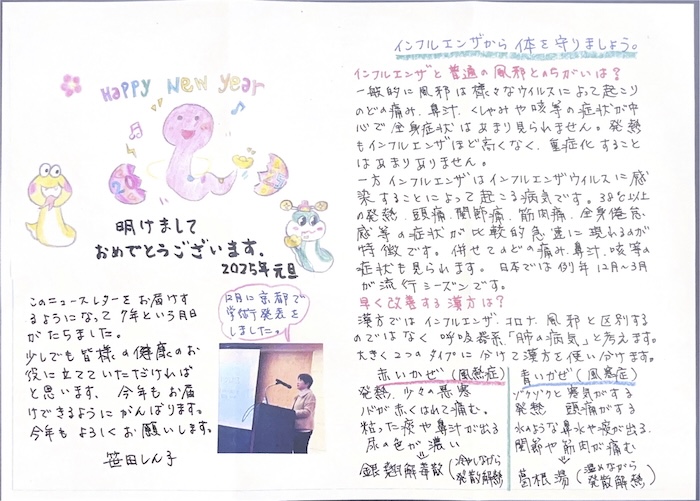 Happy New Year
明けまして
おめでとうございます。
2025年元旦
このニュースレターをお届けす
るようになって7年という月日
がたちました。
少しでも皆様の健康のお
役に立てていただければ
と思います。今年もお届
けできるようにがんばります。
今年もよろしくお願いします。
笹田しん子
12月に京都で
学術発表を
しました。
インフルエンザから体を守りましょう。
インフルエンザと普通の風邪とのちがいは?
一般的に風邪は様々なウイルスによって起こり
のどの痛み、鼻汁、くしゃみや咳等の症状が中
心で全身症状はあまり見られません。発熱
もインフルエンザほど高くなく、重症化すること
はあまりありません。
一方インフルエンザはインフルエンザウイルスに感
染することによって起こる病気です。38℃以上
の発熱、頭痛、関節痛、筋肉痛、全身倦怠
感等の症状が比較的急速に現れるのが
特徴です。併せてのどの痛み、鼻汁、咳等の
症状も見られます。日本では例年12月〜3月
が流行シーズンです。
早く改善する漢方は?
漢方ではインフルエンザ、コロナ、風邪と区別する
のではなく呼吸器系「肺の病気」と考えます。
大きく2つのタイプに分けて漢方を使い分けます。
赤いかぜ(風熱症)
発熱、少々の悪寒
のどが赤くはれて痛む。
粘った痰や鼻汁が出る
尿の色が濃い
銀翹解毒散(冷やしながら
発散解熱)
青いかぜ(風寒症)
ゾクゾクと寒気がする
発熱 頭痛がする
水のような鼻水や痰が出る
関節や筋肉が痛む
葛根湯(温めながら
発散解熱)